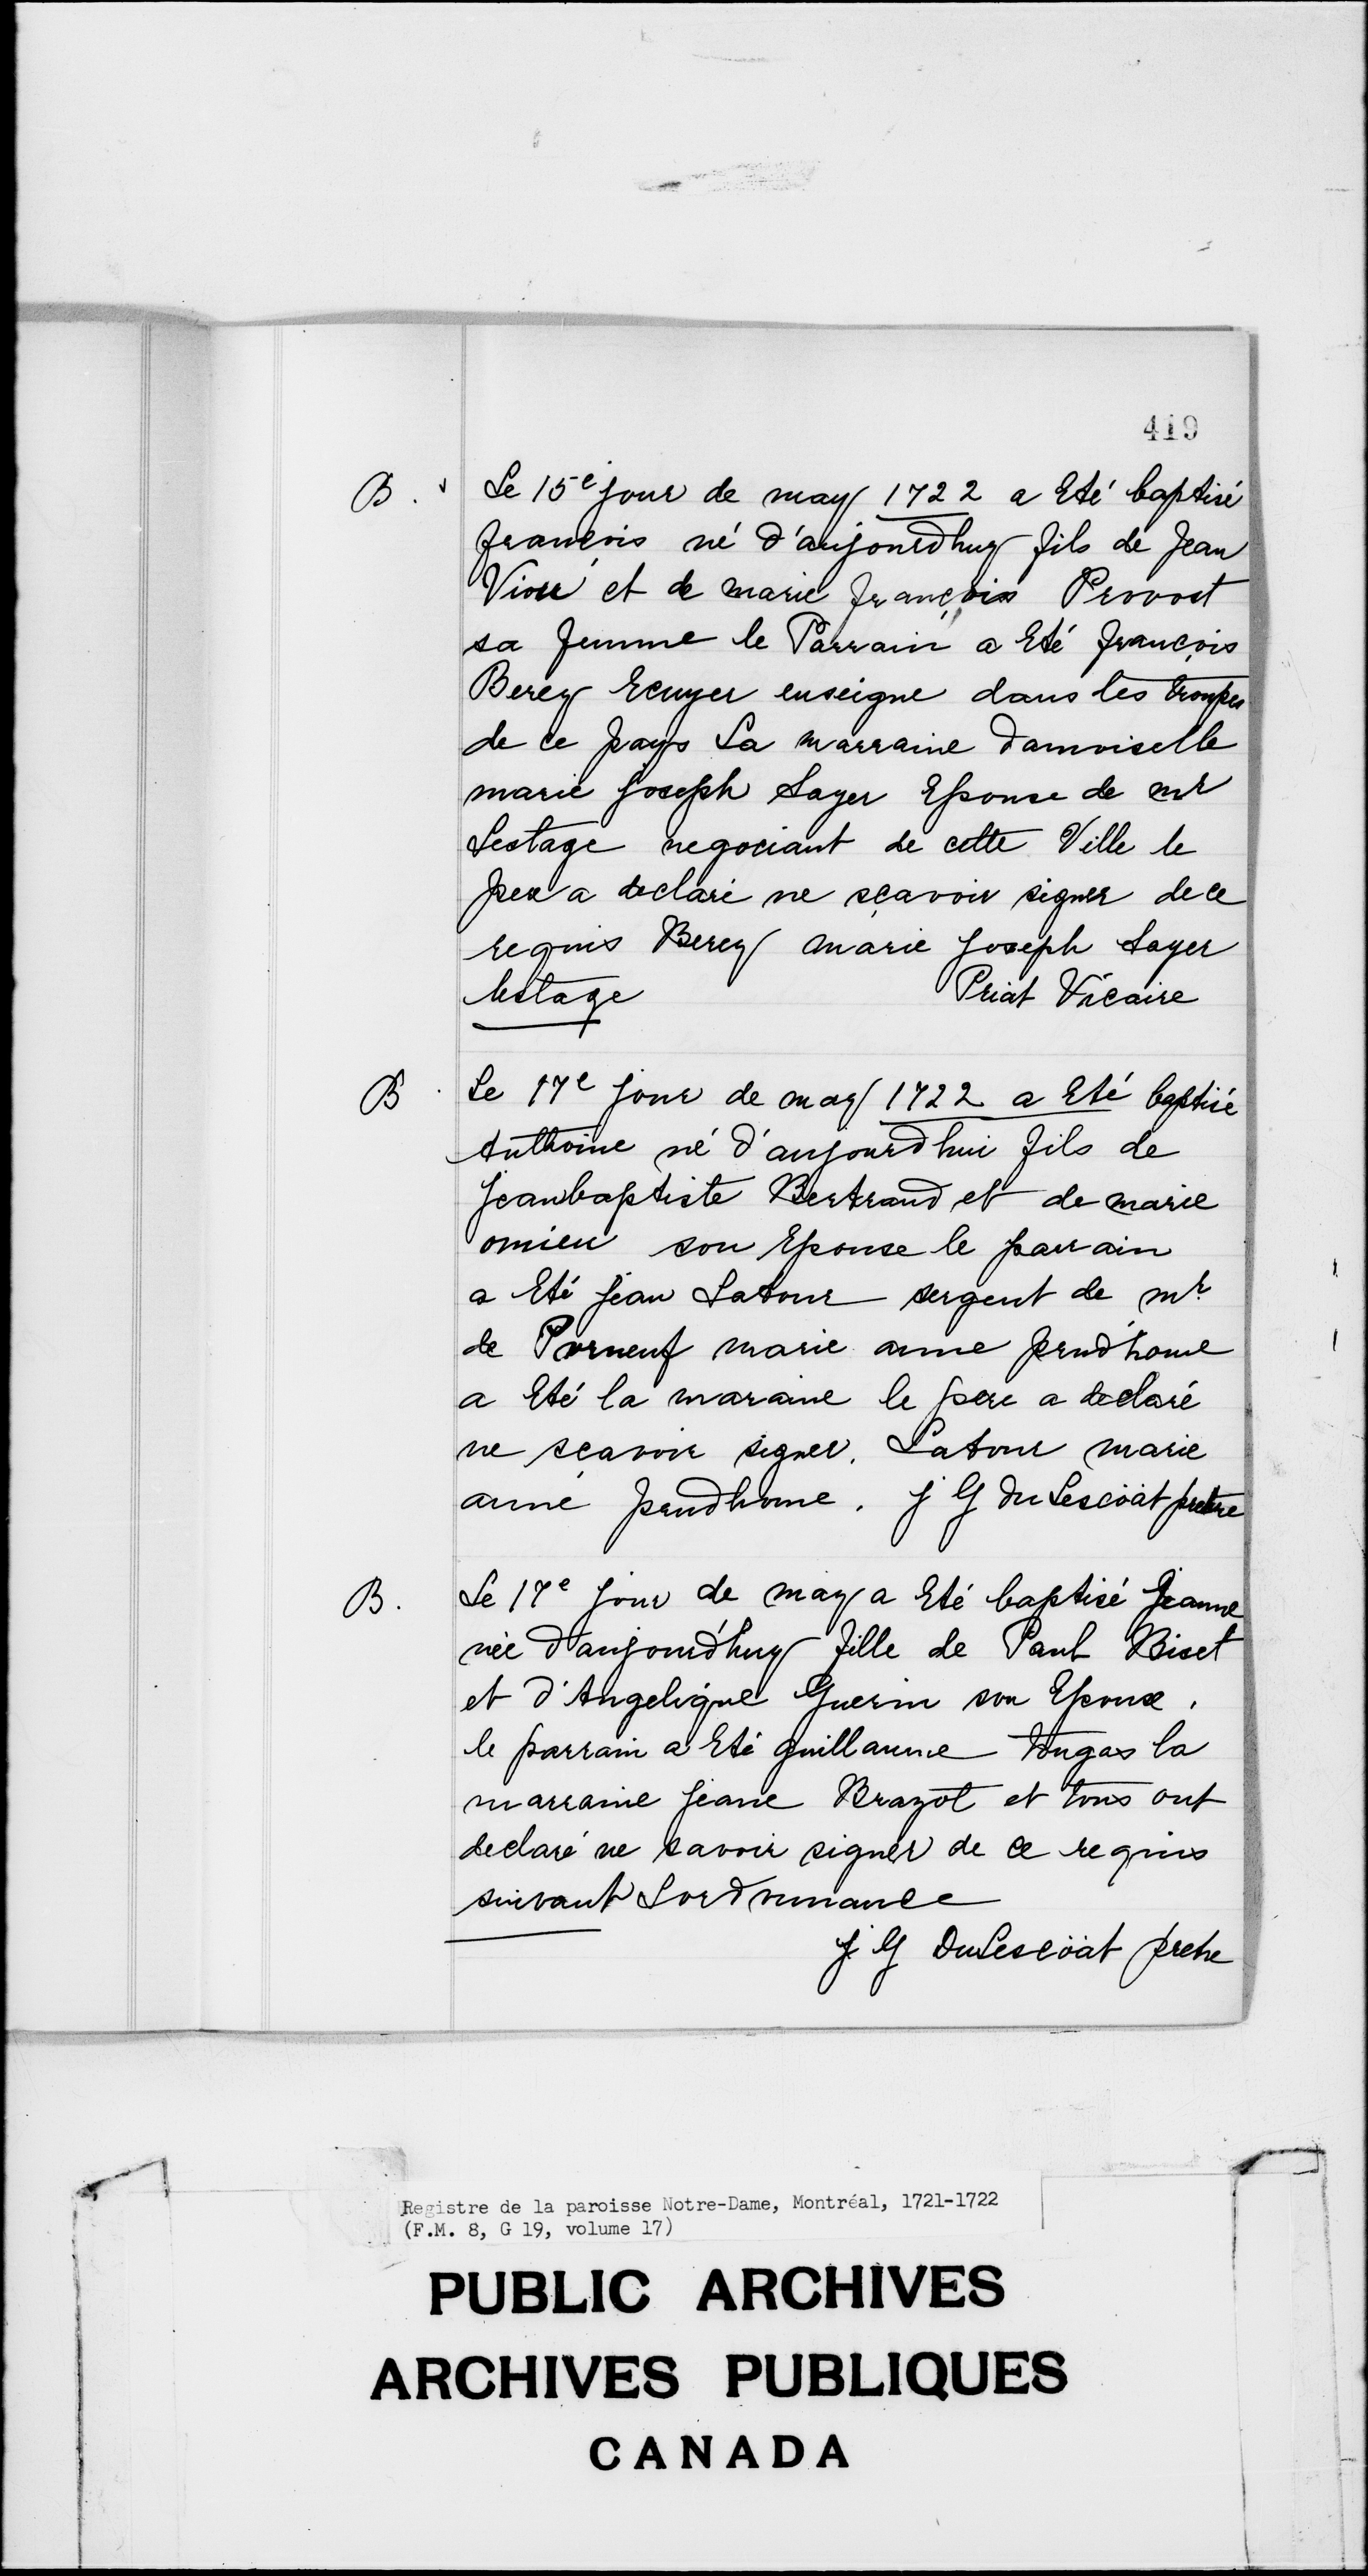 419
B. Le 15e jour de may 1722 a Eté baptisé
françois né d'aujourdhuy fils de Jean
et de marie françois Provost
sa femme le Parrain a Eté françois
Berey Ecuyer enseigne dans les troupes
de ce pays La marraine damoiselle
marie joseph Sayer Epouse de mr
Lestage negociant de cette Ville le
pere a declaré ne sçavoir signer de ce
requis Berey marie joseph Sayer
lestage Priat Vicaire
B Le 17e jour de may 1722 a Eté baptisé
Anthoine né d'aujourdhui fils de
jeanbaptiste Bertrand et de marie
omieu son Epouse le parrain
a Eté jean Latour sergent de mr
de Porneuf marie anne prud'home
a Eté la maraine le pere a declaré
ne sçavoir signer. Latour marie
anne prudhome. j G du Lescöat pretre
B. Le 17e jour de may a Eté baptisé Jeanne
née d'aujourd'huy fille de Paul Biset
et d'Angelique Guerin son Epouse.
le parrain a Eté guillaume tougas la
marraine jeane Brazot et tous ont
declaré ne savoir signer de ce requis
suivant Lordonnance
j. G DuLescöat pretre
Registre de la paroisse Notre-Dame, Montréal, 1721-1722
(F.M. 8, G 19, volume 17)
PUBLIC ARCHIVES
ARCHIVES PUBLIQUES
CANADA